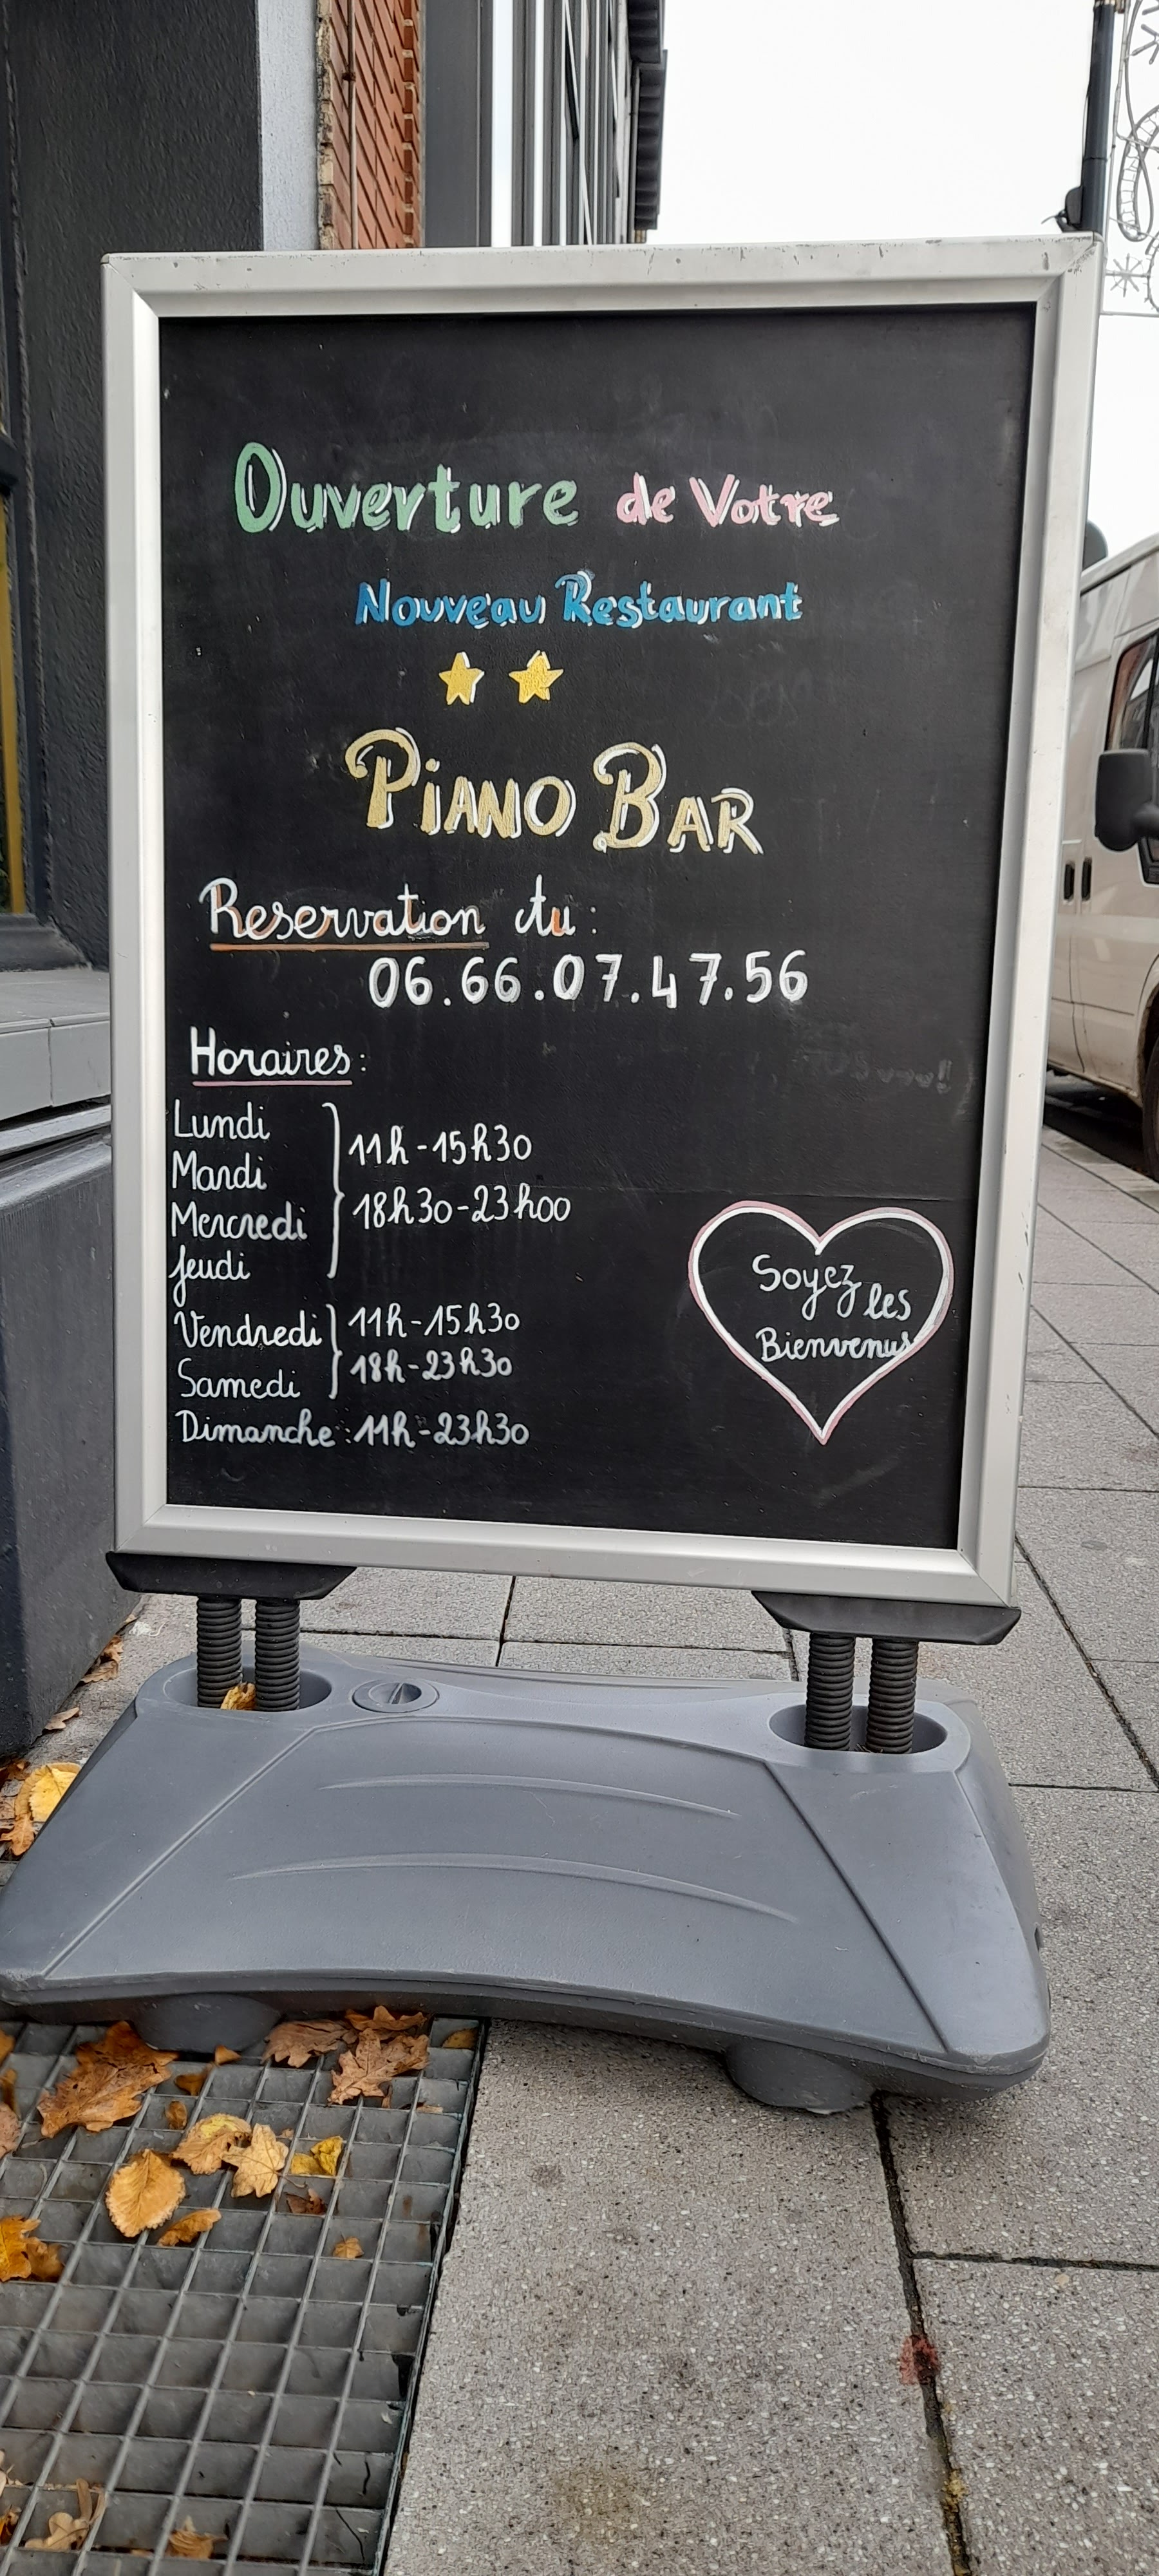 Ouverture de Votre
Nouveau Restaurant
PiANO BAR
Reservation au :
06.66.07.47.56
Horaires :
Lundi
Mardi
Mercredi
Jeudi
11h-15h30
18h30-23h00
Vendredi
Samedi
11h-15h30
18h-23h30
Dimanche : 11h-23h30
Soyez
les
Bienvenus